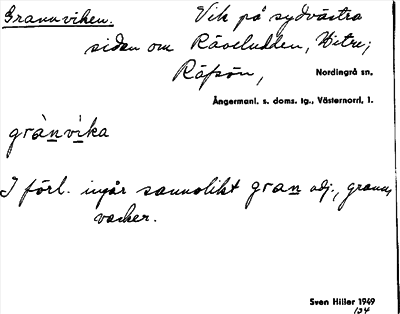 Grannviken. Vik på sydvästra
sidan om Räveludden,
Råfsön, Nordingrå sn.
Ångermanl. s. doms. tg., Västernorrl, l.
grànvìka
I förl. ingår sannolikt gran adj., grann,
vacker.
Sven Hiller 1949
134